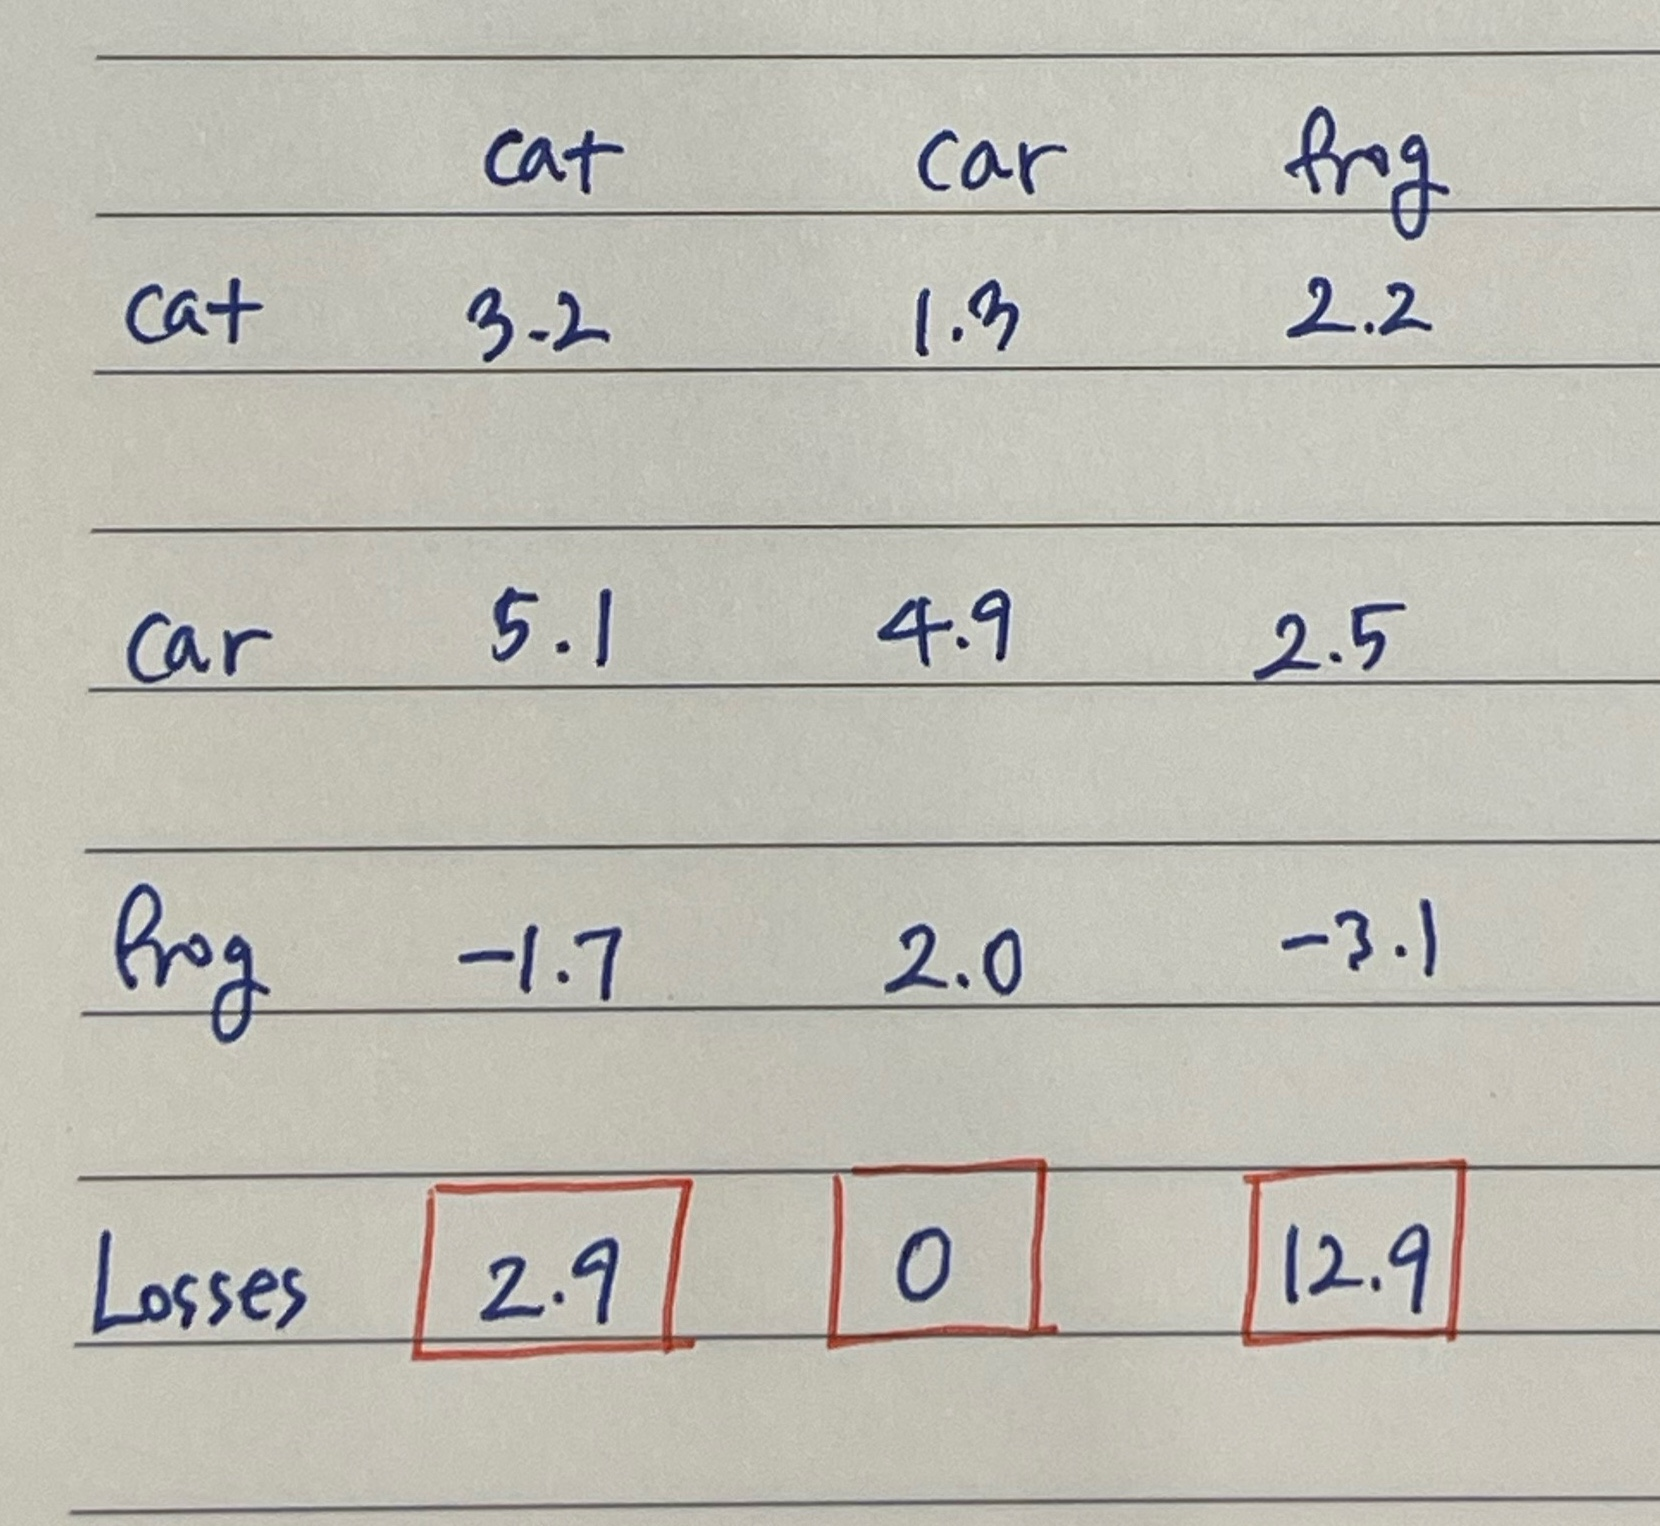 cat car frog
cat 3.2 1.3 2.2
car 5.1 4.9 2.5
frog -1.7 2.0 -3.1
Losses 2.9 0 12.9